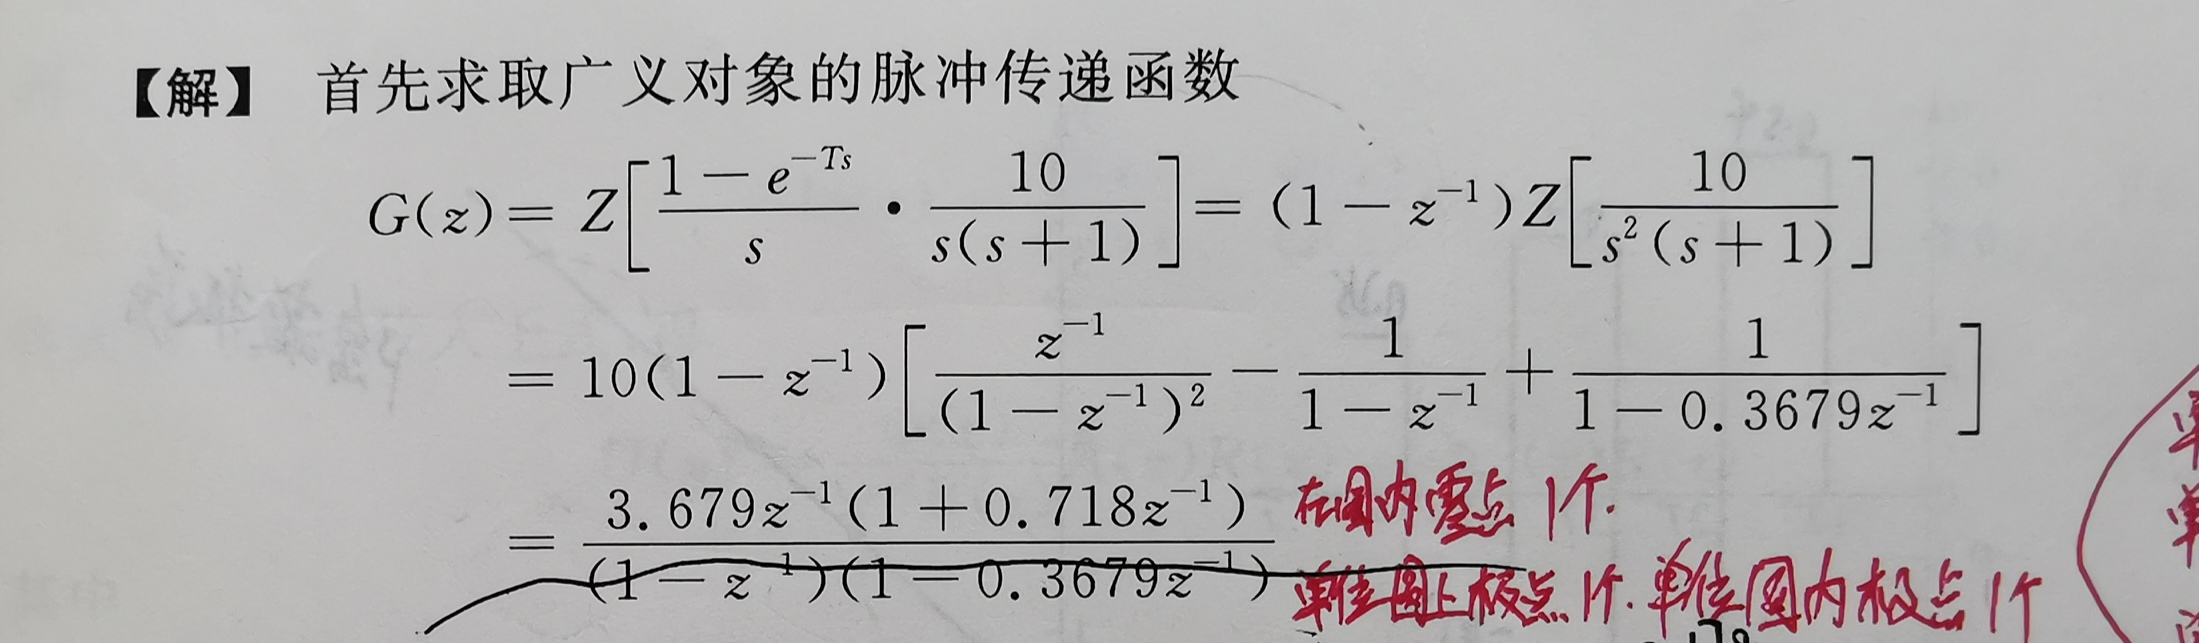 【解】 首先求取广义对象的脉冲传递函数
G(z) = Z[(1 - e^{-Ts})/s · 10/(s(s+1))] = (1 - z^{-1})Z[10/(s^2(s+1))]
= 10(1 - z^{-1})[z^{-1}/(1 - z^{-1})^2 - 1/(1 - z^{-1}) + 1/(1 - 0.3679z^{-1})]
= 3.679z^{-1}(1 + 0.718z^{-1})/((1 - z^{-1})(1 - 0.3679z^{-1}))
在圆内零点1个.
单位圆上极点1个.单位圆内极点1个